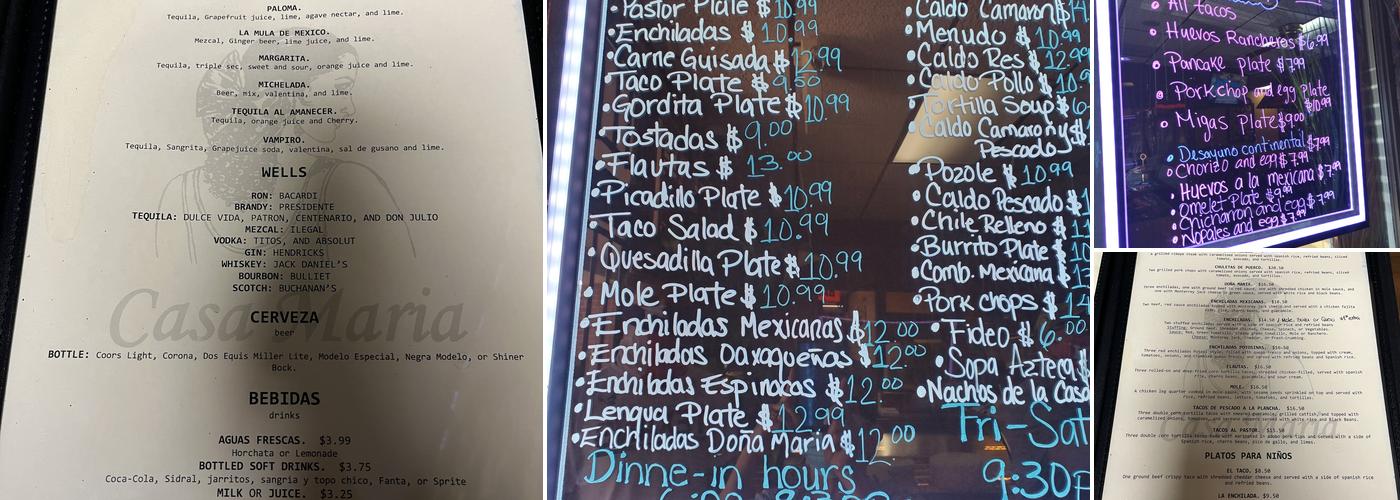 PALOMA.
Tequila, Grapefruit juice, lime, agave nectar, and lime.
LA MULA DE MEXICO.
Mezcal, Ginger beer, lime juice, and lime.
MARGARITA.
Tequila, triple sec, sweet and sour, orange juice and lime.
MICHELADA.
Beer, mix, valentina, and lime.
TEQUILA AL AMANECER.
Tequila, orange juice and Cherry.
VAMPIRO.
Tequila, Sangrita, Grapejuice soda, valentina, sal de gusano and lime.
WELLS
RON: BACARDI
BRANDY: PRESIDENTE
TEQUILA: DULCE VIDA, PATRON, CENTENARIO, AND DON JULIO
MEZCAL: ILEGAL
VODKA: TITOS, AND ABSOLUT
GIN: HENDRICKS
WHISKEY: JACK DANIEL'S
BOURBON: BULLIET
SCOTCH: BUCHANAN'S
Casa Maria
CERVEZA
beer
BOTTLE: Coors Light, Corona, Dos Equis Miller Lite, Modelo Especial, Negra Modelo, or Shiner
Bock.
BEBIDAS
drinks
AGUAS FRESCAS. $3.99
Horchata or Lemonade
BOTTLED SOFT DRINKS. $3.75
Coca-Cola, Sidral, jarritos, sangria y topo chico, Fanta, or Sprite
MILK OR JUICE. $3.25
•Pastor Plate $10.99
•Enchiladas $10.99
•Carne Guisada $12.99
•Taco Plate $9.50
•Gordita Plate $10.99
•Tostadas $9.00
•Flautas $13.00
•Picadillo Plate $10.99
•Taco Salad $10.99
•Quesadilla Plate $10.99
•Mole Plate $10.99
•Enchiladas Mexicanas $12.00
•Enchiladas Oaxaqueñas $12.00
•Enchiladas Espinacas $12.00
•Lengua Plate $12.99
•Enchiladas Doña Maria $12.00
Dinne-in hours
•Caldo Camaron $14
•Menudo $10.99
•Caldo Res $12.99
•Caldo Pollo $10.9
•Tortilla Soup $6
•Caldo Camaron y
Pescado $1
•Pozole $10.99
•Caldo Pescado $1
•Chile Relleno $1
•Burrito Plate $10
•Comb. Mexicana $1
•Pork chops $14
•Fideo $6.00
•Sopa Azteca $
•Nachos de la Casa
Fri-Sat
9:30P
• All tacos
• Huevos Rancheros $6.99
• Pancake Plate $7.99
• Porkchop and egg Plate
$10.99
• Migas Plate $9.00
• Desayuno continental $7.99
• Chorizo and egg $7.99
• Huevos a la mexicana $7.99
• Omelet Plate $9.99
• Chicharron and egg $7.99
• Nopales and egg $7.99
CHULETAS DE PUERCO. $20.50
Two grilled pork chops with caramelized onions served with Spanish rice, refried beans, slice
tomato, avocado, and tortillas.
DOÑA MARIA. $16.50
ENCHILADAS MEXICANAS. $16.50
ENCHILADAS. $14.50
ENCHILADAS POTOSINAS. $16.50
FLAUTAS. $16.50
MOLE. $16.50
TACOS DE PESCADO A LA PLANCHA. $16.50
TACOS AL PASTOR. $15.50
PLATOS PARA NIÑOS
EL TACO. $8.50
One ground beef crispy taco with shredded cheddar cheese and served with a side of spanish rice
and refried beans.
LA ENCHILADA. $9.50